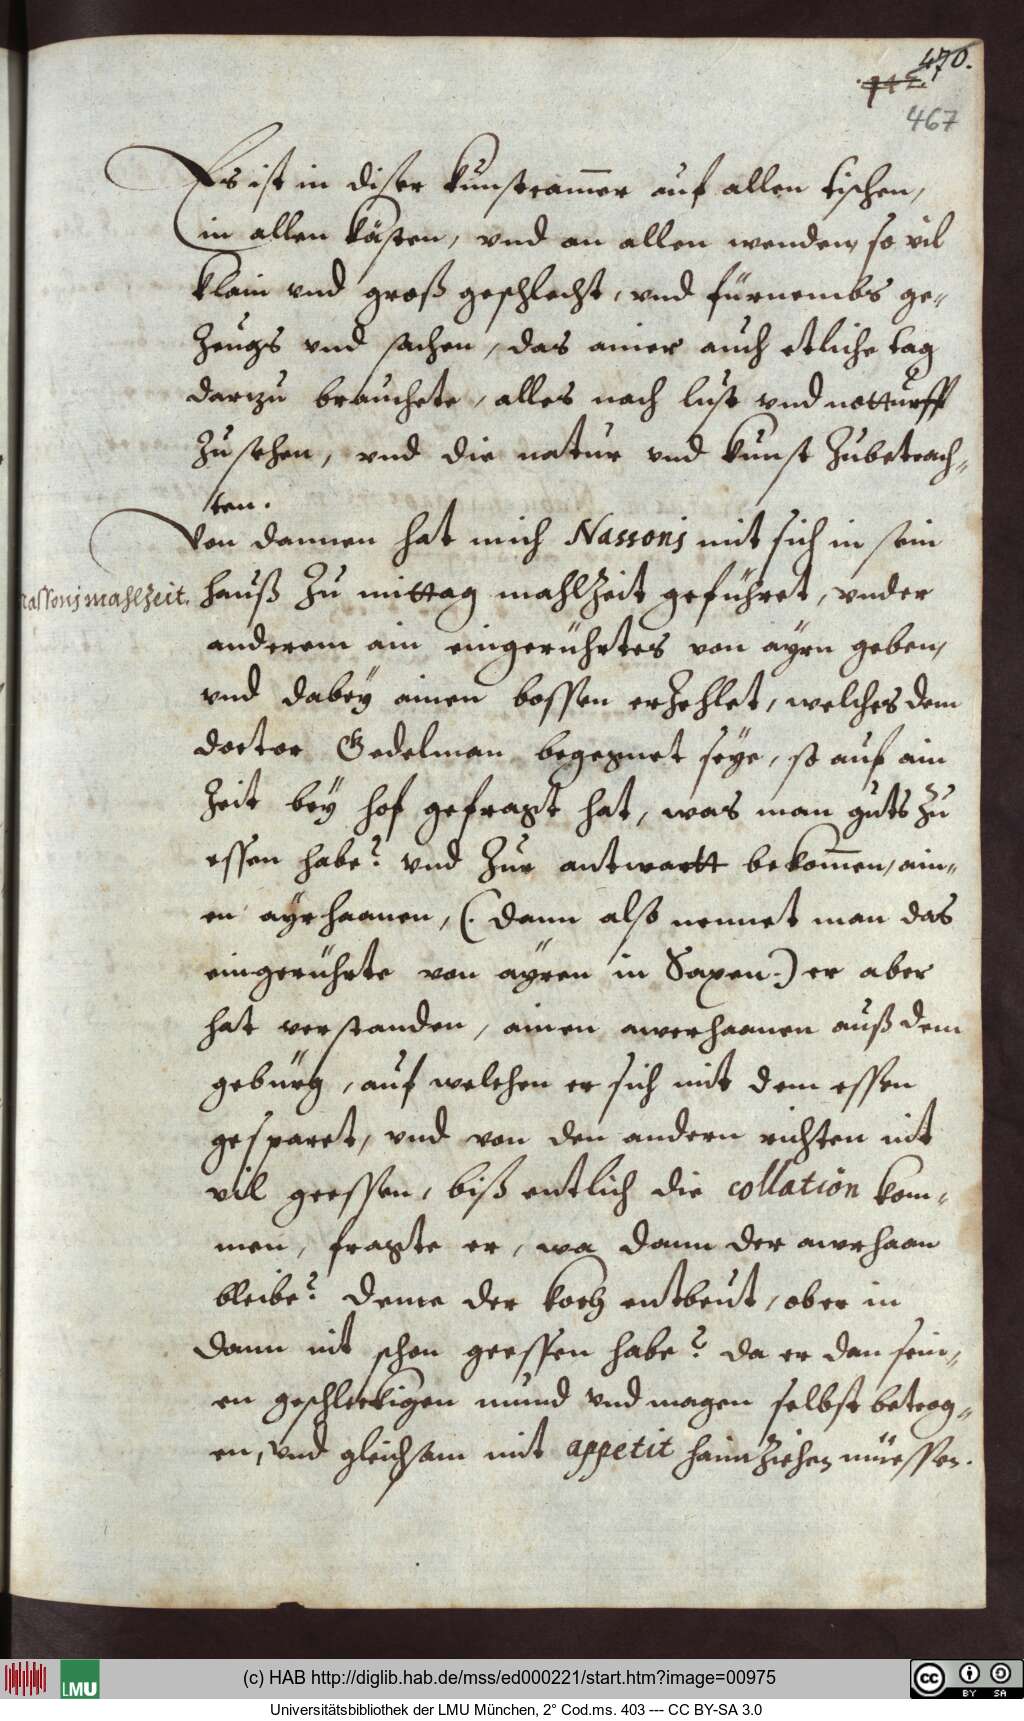 470.
467
Es ist in diser kunstcam̄er auf allen tischen,
in allen kästen, vnd an allen wenden, so vil
klain vnd groß geschlecht, vnd fürnembs ge-
zeugs vnd sachen, das ainer auch etliche tag
darzu brauchete, alles nach lust vnd notturfft
zusehen, vnd die natur vnd kunst zubetrach-
ten.
Von dannen hat mich Nassonj mit sich in sein
Nassonj mahlzeit.
hauß zu mittag mahlzeit geführet, vnder
anderem ain eingerührtes von aÿrn geben,
vnd dabeÿ ainen bossen erzehlet, welches dem
doctor Gedelman begegnet seÿe, so auf ain
zeit beÿ hof gefragt hat, was man guts zu
essen habe? vnd zur antwortt bekom̄en, ain-
en aÿrhaanen, (dann also nennet man das
eingerührte von aÿren in Saxen.) er aber
hat verstanden, ainen awerhaanen auß dem
gebürg, auf welchen er sich mit dem essen
gesparet, vnd von den andern richten nit
vil geessen, biß entlich die collation kom-
men, fragte er, wa dann der awrhaan
bleibe? deme der koch entbeut, ob er in
dann nit schon geessen habe? da er dan sein-
en geschleckigen mund vnd magen selbst betrog-
en, vnd gleichsam mit appetit haimziehen müessen.
(c) HAB http://diglib.hab.de/mss/ed000221/start.htm?image=00975
LMU
BY SA
Universitätsbibliothek der LMU München, 2° Cod.ms. 403 --- CC BY-SA 3.0